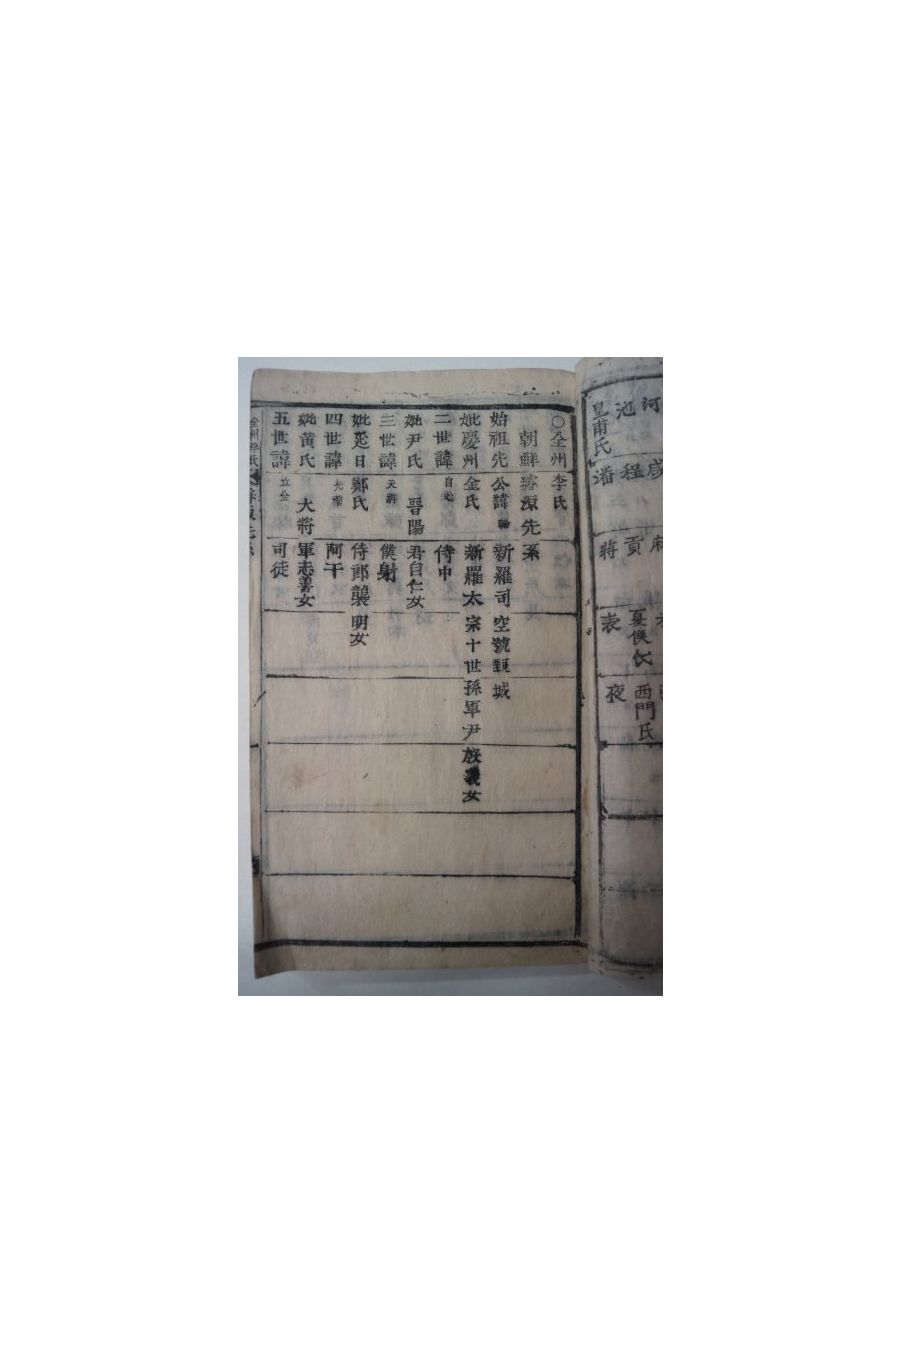 河
池
皇甫氏
程
潘
貢
蔣
夏侯氏
表
西門氏
夜
○全州李氏
朝鮮璿源先系
始祖先公諱翰新羅司空號甄城
妣慶州金氏新羅太宗十世孫軍尹殷義女
二世諱自延侍中
妣尹氏晋陽君自仁女
三世諱天祥僕射
妣延日鄭氏侍郎襲明女
四世諱光禧阿干
妣黃氏大將軍志善女
五世諱立全司徒
全州李氏